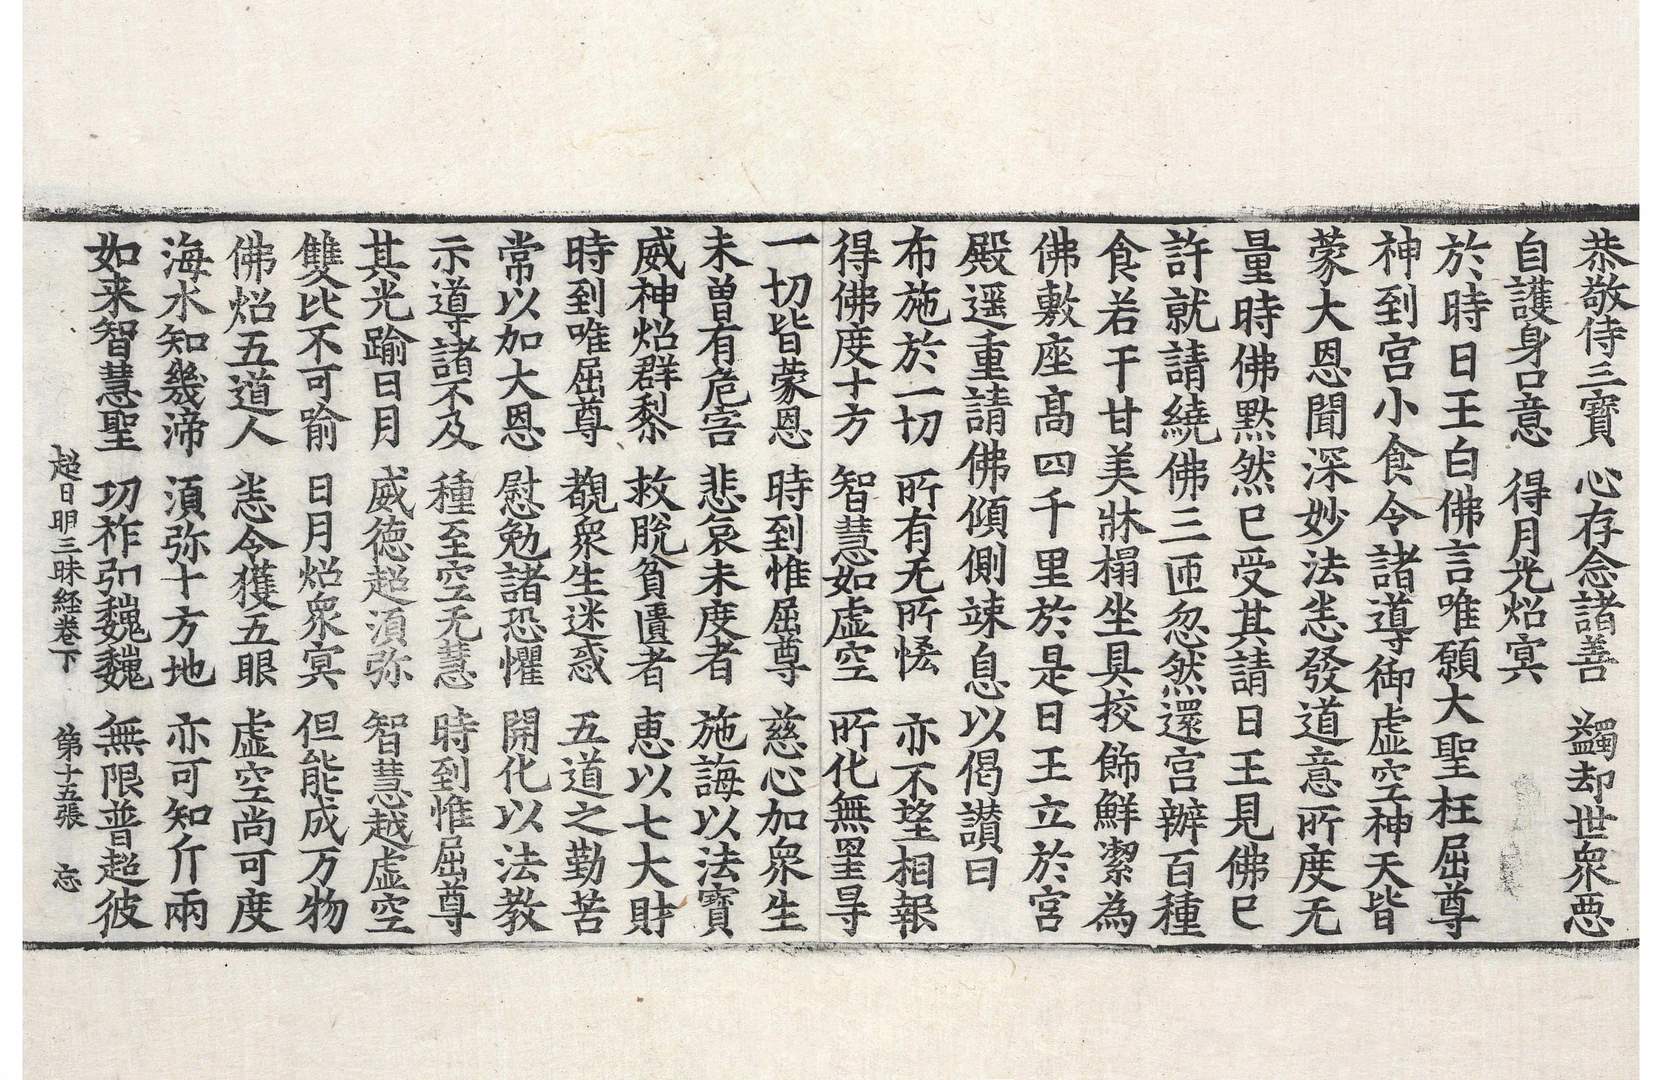 恭敬侍三寶　心存念諸善　蠲却世衆惡
自護身口意　得月光炤冥
於時日王白佛言唯願大聖枉屈尊
神到宫小食令諸導御虚空神天皆
蒙大恩聞深妙法恙發道意所度无
量時佛黙然已受其請日王見佛已
許就請繞佛三匝忽然還宫辦百種
食若干甘美牀榻坐具挍飾鮮潔為
佛敷座髙四千里於是日王立於宫
殿遥重請佛傾側竦息以偈讃曰
布施於一切　所有无所悋　亦不望相報
得佛度十方　智慧如虚空　所化無罣㝵
一切皆蒙恩　時到惟屈尊　慈心加衆生
未曽有危害　悲哀未度者　施誨以法寶
威神炤群黎　救脫貧匱者　恵以七大財
時到唯屈尊　覩衆生迷惑　五道之勤苦
常以加大恩　慰勉諸恐懼　開化以法教
示導諸不及　種至空无慧　時到惟屈尊
其光踰日月　威德超湏弥　智慧越虚空
雙比不可喻　日月炤衆冥　但能成万物
佛炤五道人　恙令獲五眼　虚空尚可度
海水知幾渧　湏弥十方地　亦可知斤兩
如来智慧聖　功祚弘巍巍　無限普超彼
超日明三昧経卷下　第十五張　忘